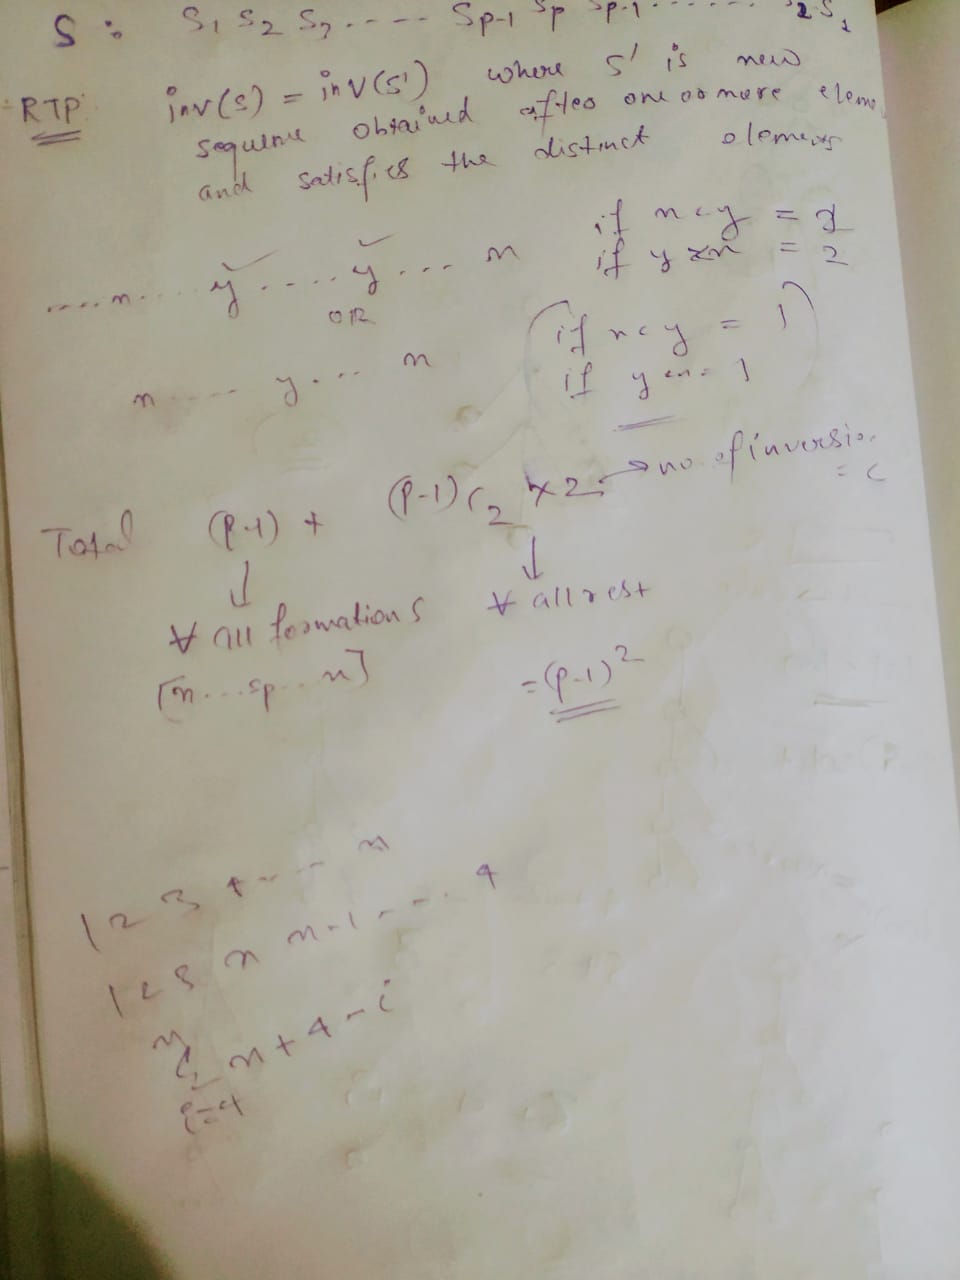 S : S1 S2 S3 ..... Sp-1 Sp Sp-1 ...... S2 S1
RTP inv(s) = inv(s') where s' is new
sequence obtained after one or more eleme
and satisfies the distinct elements
if x<y = 1
if y>x = 2
.....x.... y.....y... x
OR
(if x<y = 1)
if y<x = 1
x .... y. ... x
Total (p-1) + (p-1)C2 × 2 → no of inversio.
= c
↓ ↓
∀ all formations ∀ all rest
[x...sp...x] = (p-1)²
1 2 3 4 --- n
1 2 3 n n-1 --- 4
n
Σ n+4-i
i=4